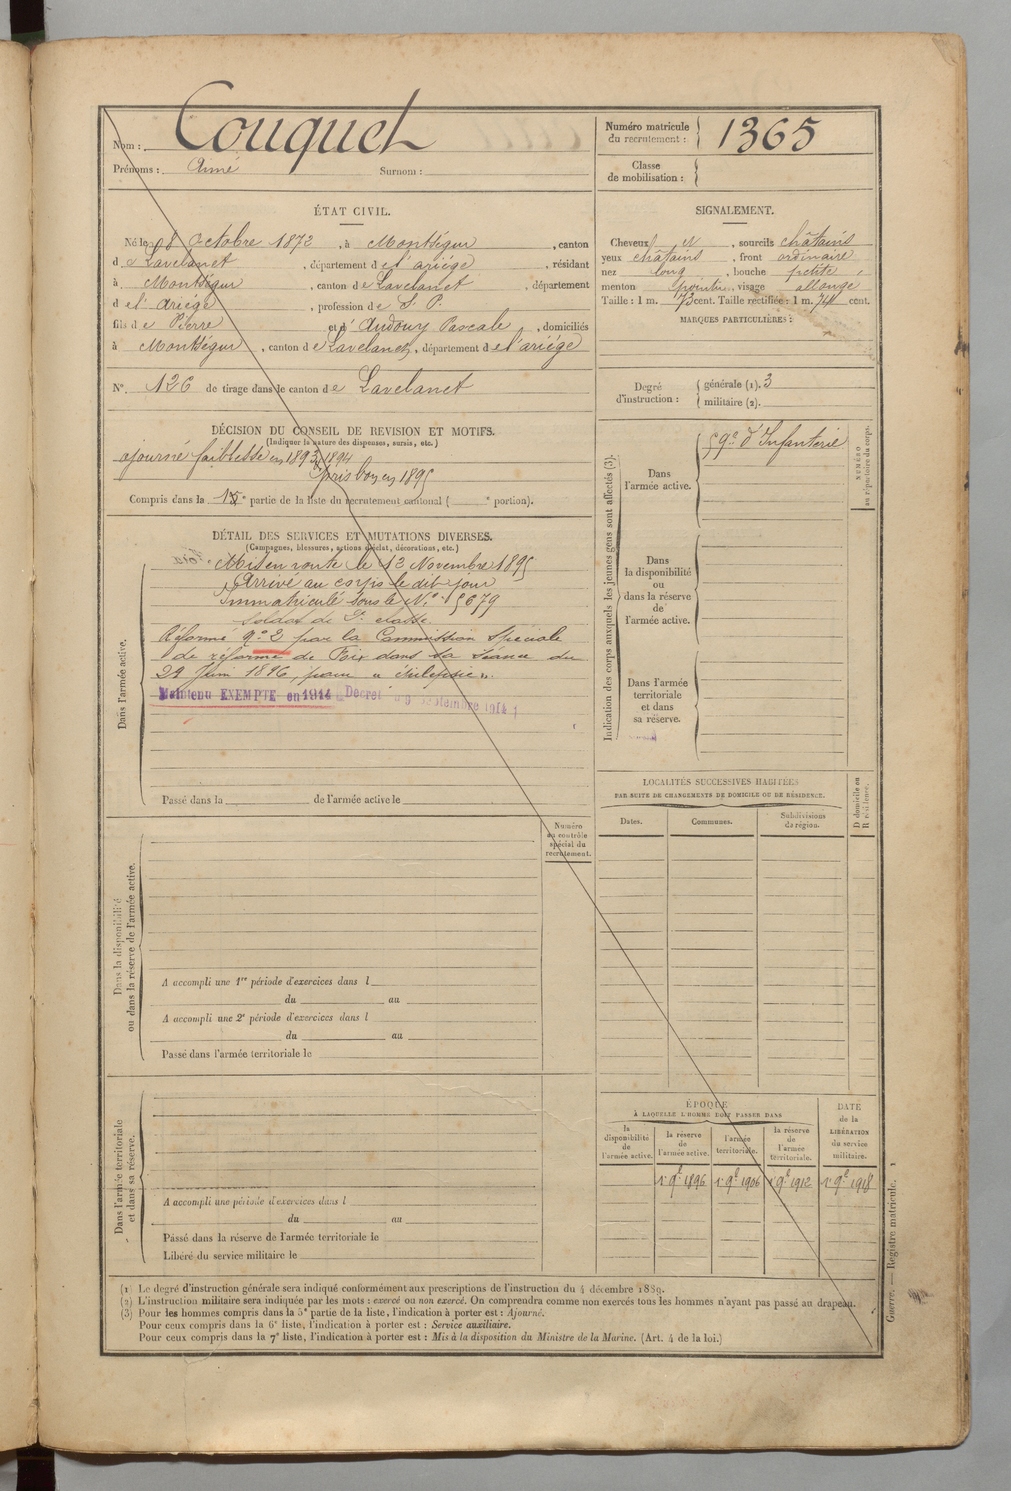 Nom : Couquet
Prénoms : Aimé Surnom :
Numéro matricule du recrutement : 1365
Classe de mobilisation :
ÉTAT CIVIL.
Né le 8 Octobre 1872, à Montségur, canton
de Lavelanet, département de l'ariége, résidant
à Montségur, canton de Lavelanet, département
de l'Ariége, profession de S. P.
fils de Pierre et d'Audouy Pascale, domiciliés
à Montségur, canton de Lavelanet, département de l'ariége
N° 126 de tirage dans le canton de Lavelanet
SIGNALEMENT.
Cheveux et, sourcils châtains
yeux châtains, front ordinaire
nez long, bouche petite,
menton pointu, visage allongé
Taille : 1 m. 73 cent. Taille rectifiée : 1 m. 74 cent.
MARQUES PARTICULIÈRES :
Degré d'instruction : générale (1). 3
militaire (2).
DÉCISION DU CONSEIL DE REVISION ET MOTIFS.
(Indiquer la nature des dispenses, sursis, etc.)
ajourné faiblesse en 1893, 1894
pris bon en 1895
Compris dans la partie de la liste du recrutement cantonal ( e portion).
DÉTAIL DES SERVICES ET MUTATIONS DIVERSES.
(Campagnes, blessures, actions d'éclat, décorations, etc.)
Dans l'armée active.
Mis en route le 13 Novembre 1895
Arrivé au corps le dit jour
Immatriculé sous le N° 5679
Soldat de 2e classe
Réformé n° 2 par la Commission Spéciale
de réforme de Foix dans sa séance du
29 Juin 1896, pour « Épilepsie ».
Maintenu EXEMPTÉ en 1914 Décret 9 Septembre 1914
Passé dans la de l'armée active le
Indication des corps auxquels les jeunes gens sont affectés (3).
Dans l'armée active.
59e d'Infanterie
NUMÉRO au répertoire du corps.
Dans la disponibilité ou dans la réserve de l'armée active.
Dans l'armée territoriale et dans sa réserve.
LOCALITÉS SUCCESSIVES HABITÉES
PAR SUITE DE CHANGEMENTS DE DOMICILE OU DE RÉSIDENCE.
Dates. Communes. Subdivisions de région. D domicile ou R résidence.
Dans la disponibilité ou dans la réserve de l'armée active.
Numéro au contrôle spécial du recrutement.
A accompli une 1re période d'exercices dans l
du au
A accompli une 2e période d'exercices dans l
du au
Passé dans l'armée territoriale le
Dans l'armée territoriale et dans sa réserve.
A accompli une période d'exercices dans l
du au
Passé dans la réserve de l'armée territoriale le
Libéré du service militaire le
ÉPOQUE
À LAQUELLE L'HOMME DOIT PASSER DANS
la disponibilité de l'armée active. la réserve de l'armée active. l'armée territoriale. la réserve de l'armée territoriale. DATE de la LIBÉRATION du service militaire.
1 9e 1896 1 9e 1906 1 9e 1912 1 9e 1918
(1) Le degré d'instruction générale sera indiqué conformément aux prescriptions de l'instruction du 4 décembre 1889.
(2) L'instruction militaire sera indiquée par les mots : exercé ou non exercé. On comprendra comme non exercés tous les hommes n'ayant pas passé au drapeau.
(3) Pour les hommes compris dans la 5e partie de la liste, l'indication à porter est : Ajourné.
Pour ceux compris dans la 6e liste, l'indication à porter est : Service auxiliaire.
Pour ceux compris dans la 7e liste, l'indication à porter est : Mis à la disposition du Ministre de la Marine. (Art. 4 de la loi.)
Guerre. — Registre matricule. 1